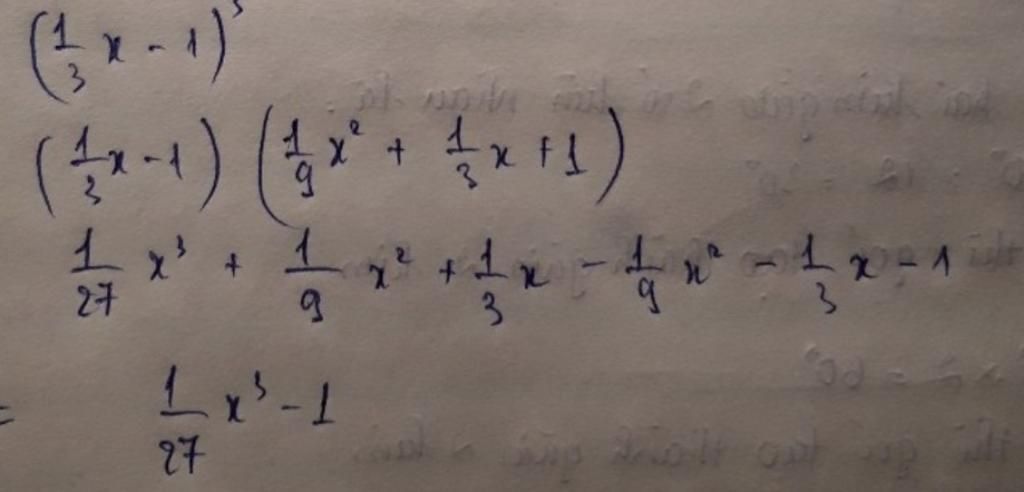 (1/3 x - 1)³
(1/3 x - 1) (1/9 x² + 1/3 x + 1)
1/27 x³ + 1/9 x² + 1/3 x - 1/9 x² - 1/3 x - 1
= 1/27 x³ - 1